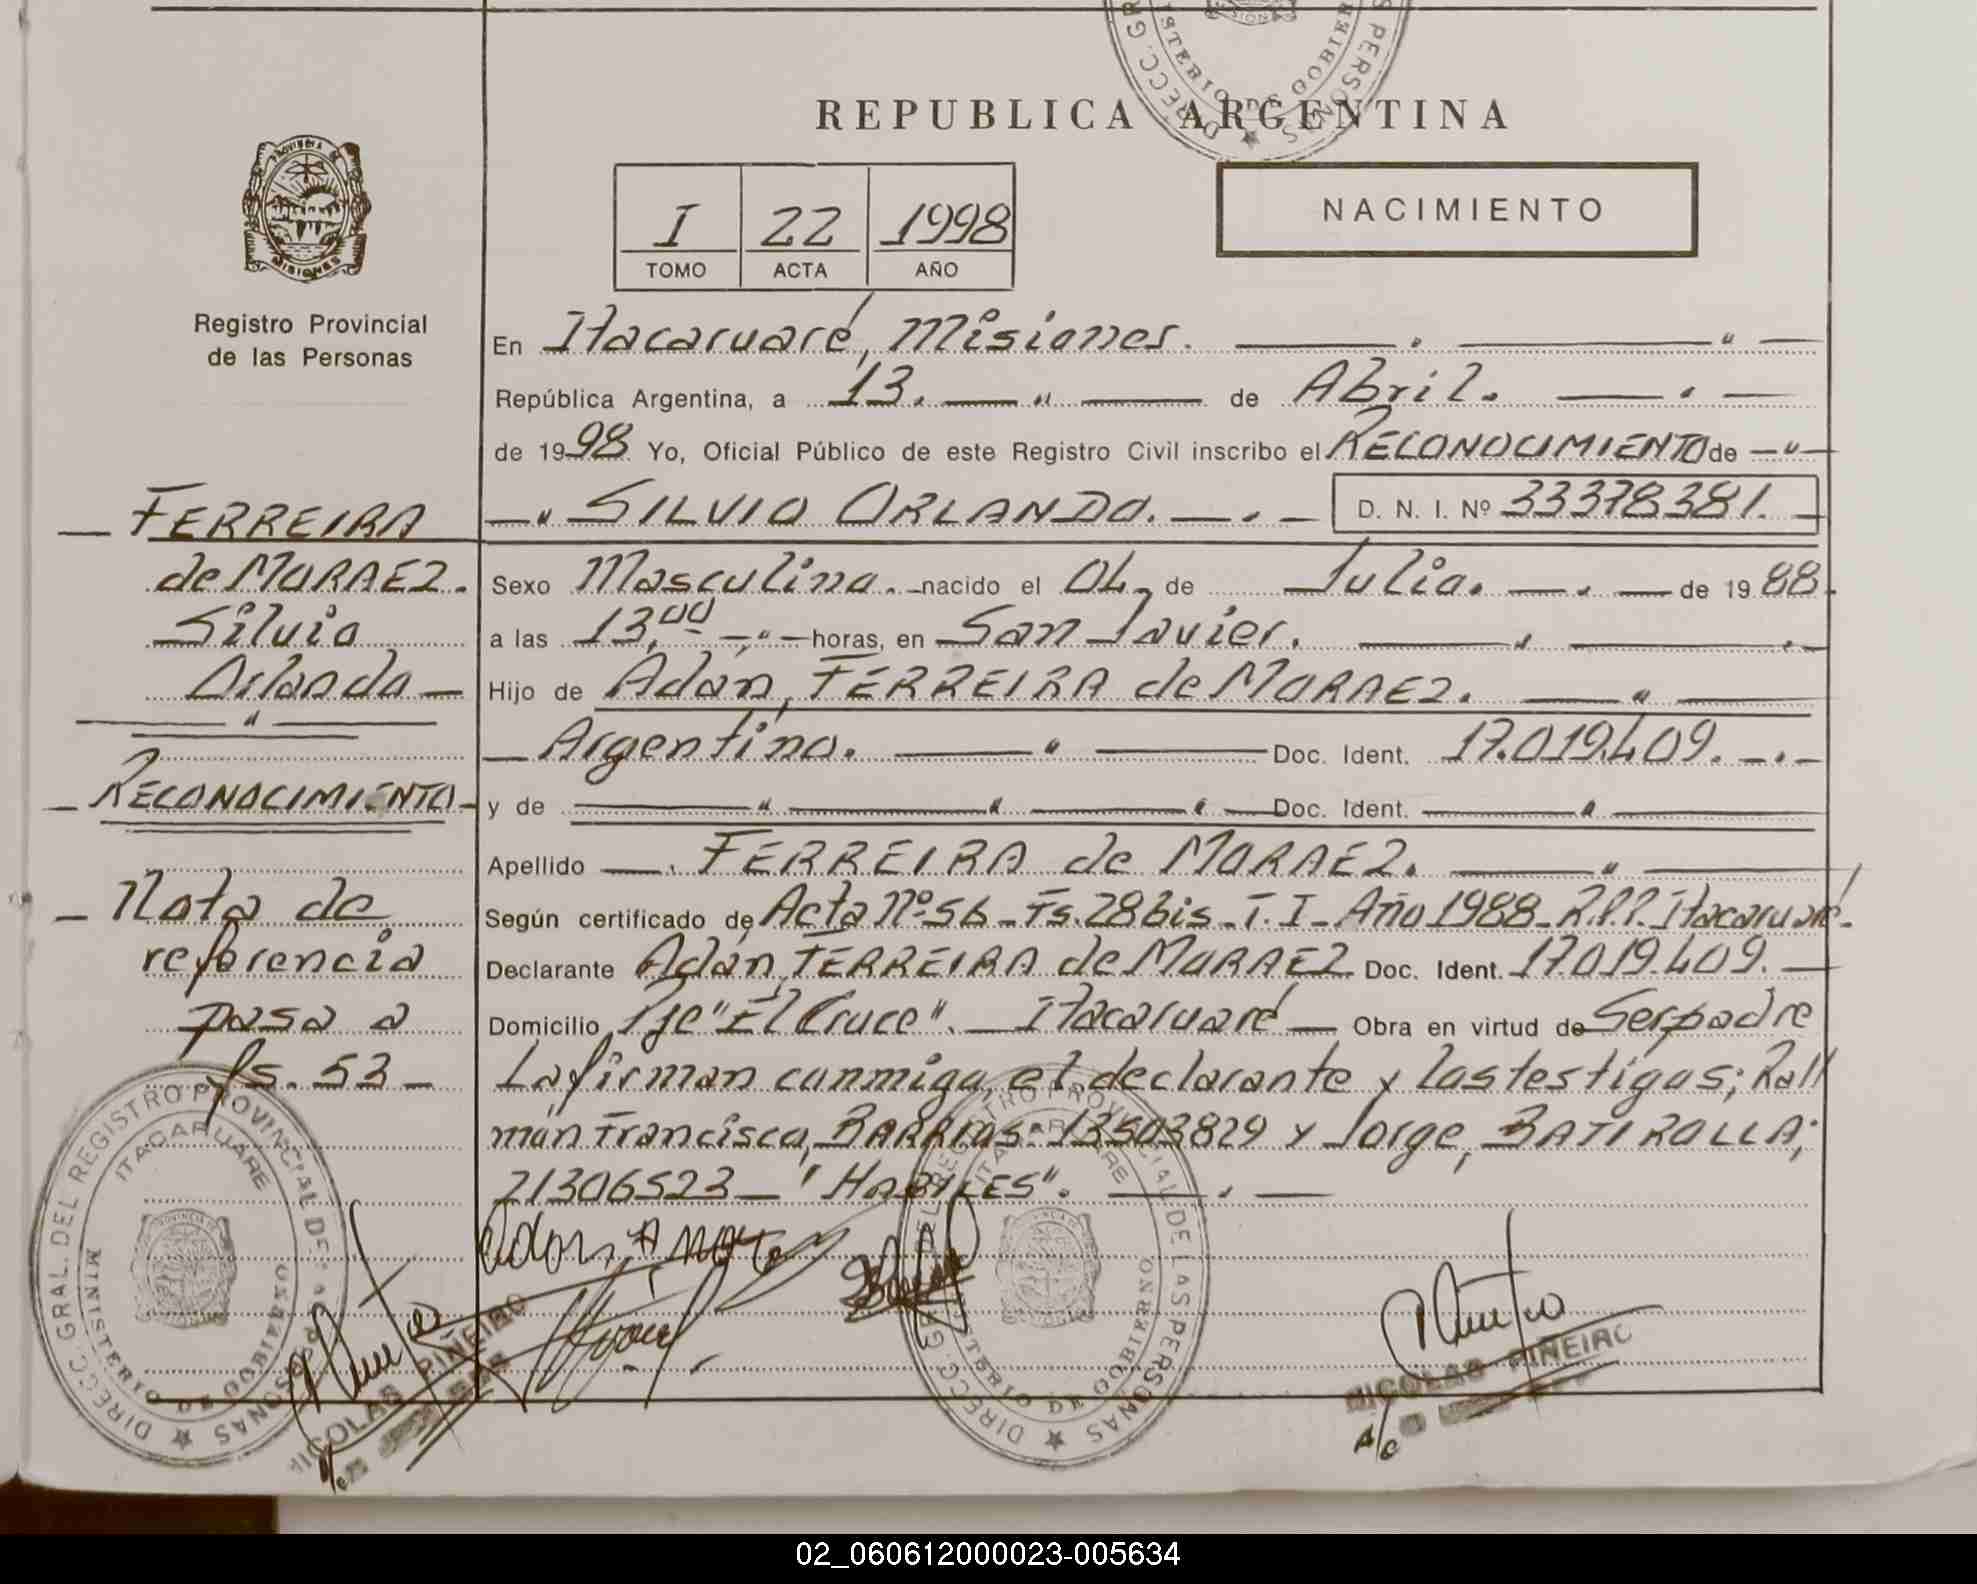 REPUBLICA ARGENTINA
I 22 1998
TOMO ACTA AÑO
NACIMIENTO
PROVINCIA DE
MISIONES
Registro Provincial
de las Personas
FERREIRA
de MORAEZ.
Silvio
Orlando —
RECONOCIMIENTO
— Nota de
referencia
pasa a
fs. 53 —
En Itacaruaré, Misiones.
República Argentina, a 13. de Abril.
de 1998 Yo, Oficial Público de este Registro Civil inscribo el RECONOCIMIENTO de
SILVIO ORLANDO. D. N. I. Nº 33378381.
Sexo Masculino. nacido el 04 de Julio. de 1988.
a las 13,00 horas, en San Javier.
Hijo de Adán, FERREIRA de MORAEZ.
Argentino. Doc. Ident. 17.019.409.
y de Doc. Ident.
Apellido FERREIRA de MORAEZ.
Según certificado de Acta Nº 56 - Fs. 28 bis - T. I - Año 1988 - R.P.P. Itacaruaré.
Declarante Adán, FERREIRA de MORAEZ Doc. Ident. 17.019.409.
Domicilio Pje "El Cruce". Itacaruaré Obra en virtud de Ser padre
La firman conmigo, el declarante y los testigos; Ra//
món Francisco, BARRIOS 13503829 y Jorge, BATIROLLA;
21306523 — "HABILES".
DIRECC. GRAL. DEL REGISTRO PROVINCIAL DE LAS PERSONAS
ITACARUARE
MINISTERIO DE GOBIERNO
NICOLAS PIÑEIRO
DIRECC. GRAL. DEL REGISTRO PROVINCIAL DE LAS PERSONAS
ITACARUARE
MINISTERIO DE GOBIERNO
NICOLAS PIÑEIRO
a/c
02_060612000023-005634